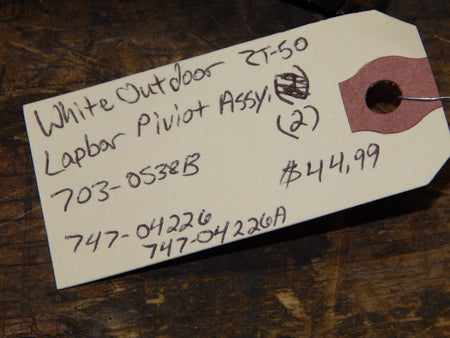 White Outdoor ZT-50
Lapbar Piviot Assy.
(2)
703-0538B
$44.99
747-04226
747-04226A